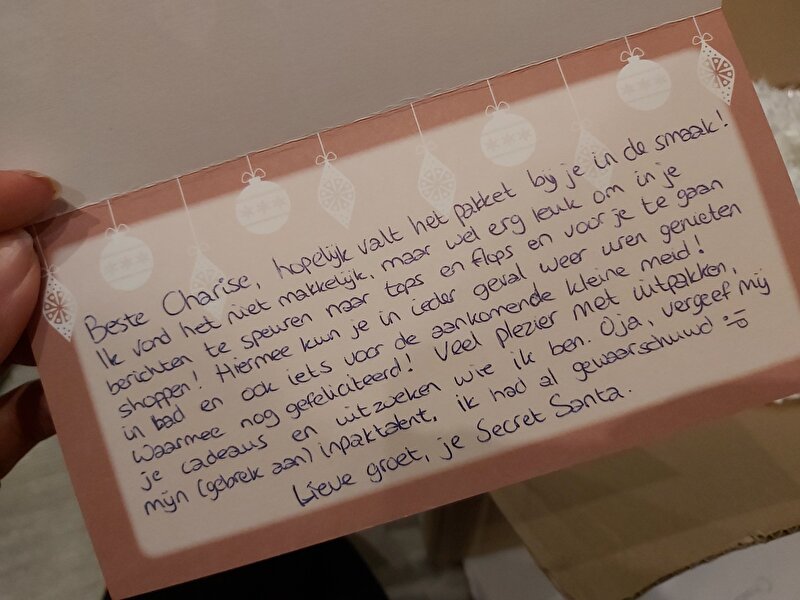 Beste Charise, hopelijk valt het pakket bij je in de smaak!
Ik vond het niet makkelijk, maar wel erg leuk om in je
berichten te speuren naar tops en flops en voor je te gaan
shoppen! Hiermee kun je in ieder geval weer uren genieten
in bad en ook iets voor de aankomende kleine meid!
Waarmee nog gefeliciteerd! Veel plezier met uitpakken,
je cadeaus en uitzoeken wie ik ben. Oja, vergeef mij
mijn (gebrek aan) inpaktalent, ik had al gewaarschuwd :)
Lieve groet, je Secret Santa.